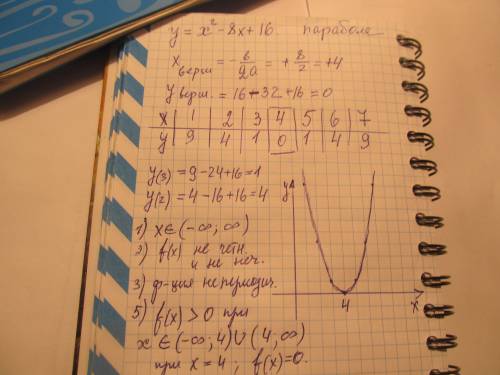 y = x² - 8x + 16 парабола
x верш = -b/2a = +8/2 = +4
y верш. = 16 - 32 + 16 = 0
x 1 2 3 4 5 6 7
y 9 4 1 0 1 4 9
y(3) = 9 - 24 + 16 = 1
y(2) = 4 - 16 + 16 = 4
1) x ∈ (-∞; ∞)
2) f(x) не четн.
и не неч.
3) ф-ция непериодич.
5) f(x) > 0 при
x ∈ (-∞; 4) ∪ (4, ∞)
при x = 4; f(x) = 0.
y
4
x